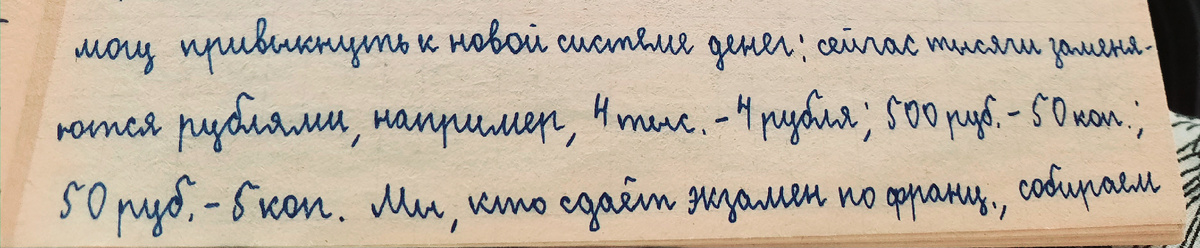 могу привыкнуть к новой системе денег: сейчас тысячи заменя-
ются рублями, например, 4 тыс. - 4 рубля; 500 руб. - 50 коп.;
50 руб. - 5 коп. Мы, кто сдаёт экзамен по франц., собираем